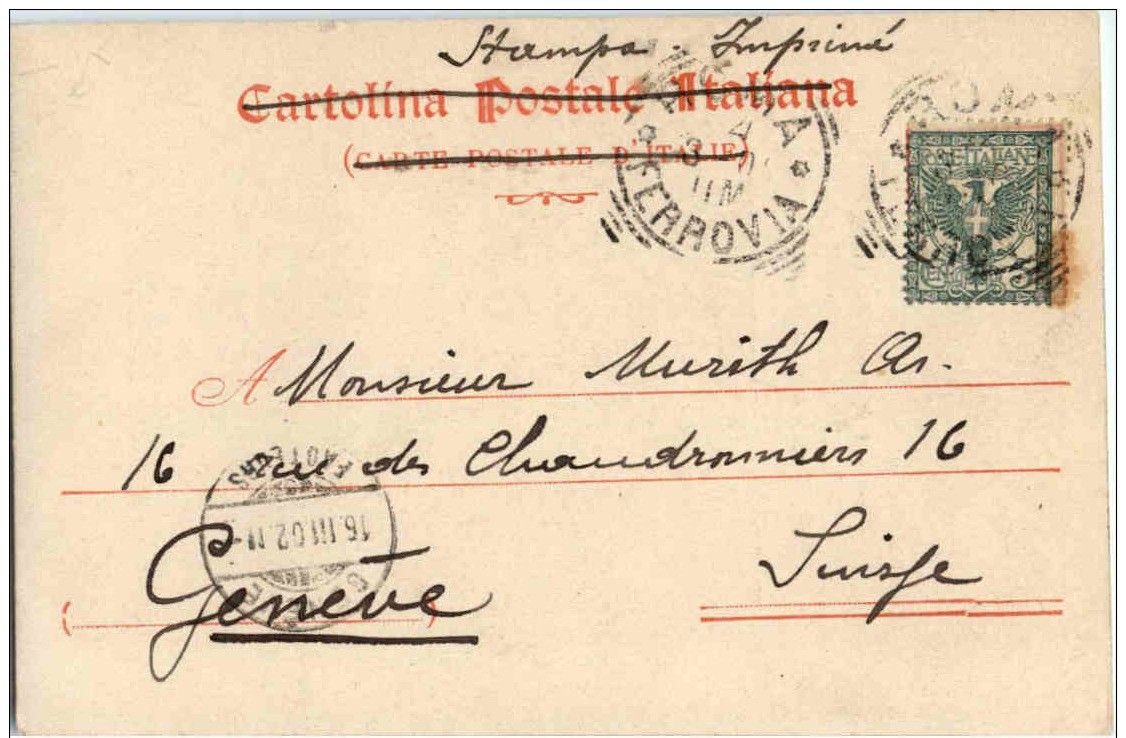 Stampa - Imprimé
Cartolina Postale Italiana
(CARTE POSTALE D'ITALIE)
ROMA
FERROVIA
POSTE ITALIANE
A Monsieur Murith Os.
16 rue des Chaudronniers 16
16.III.02.11
Genève
Suisse